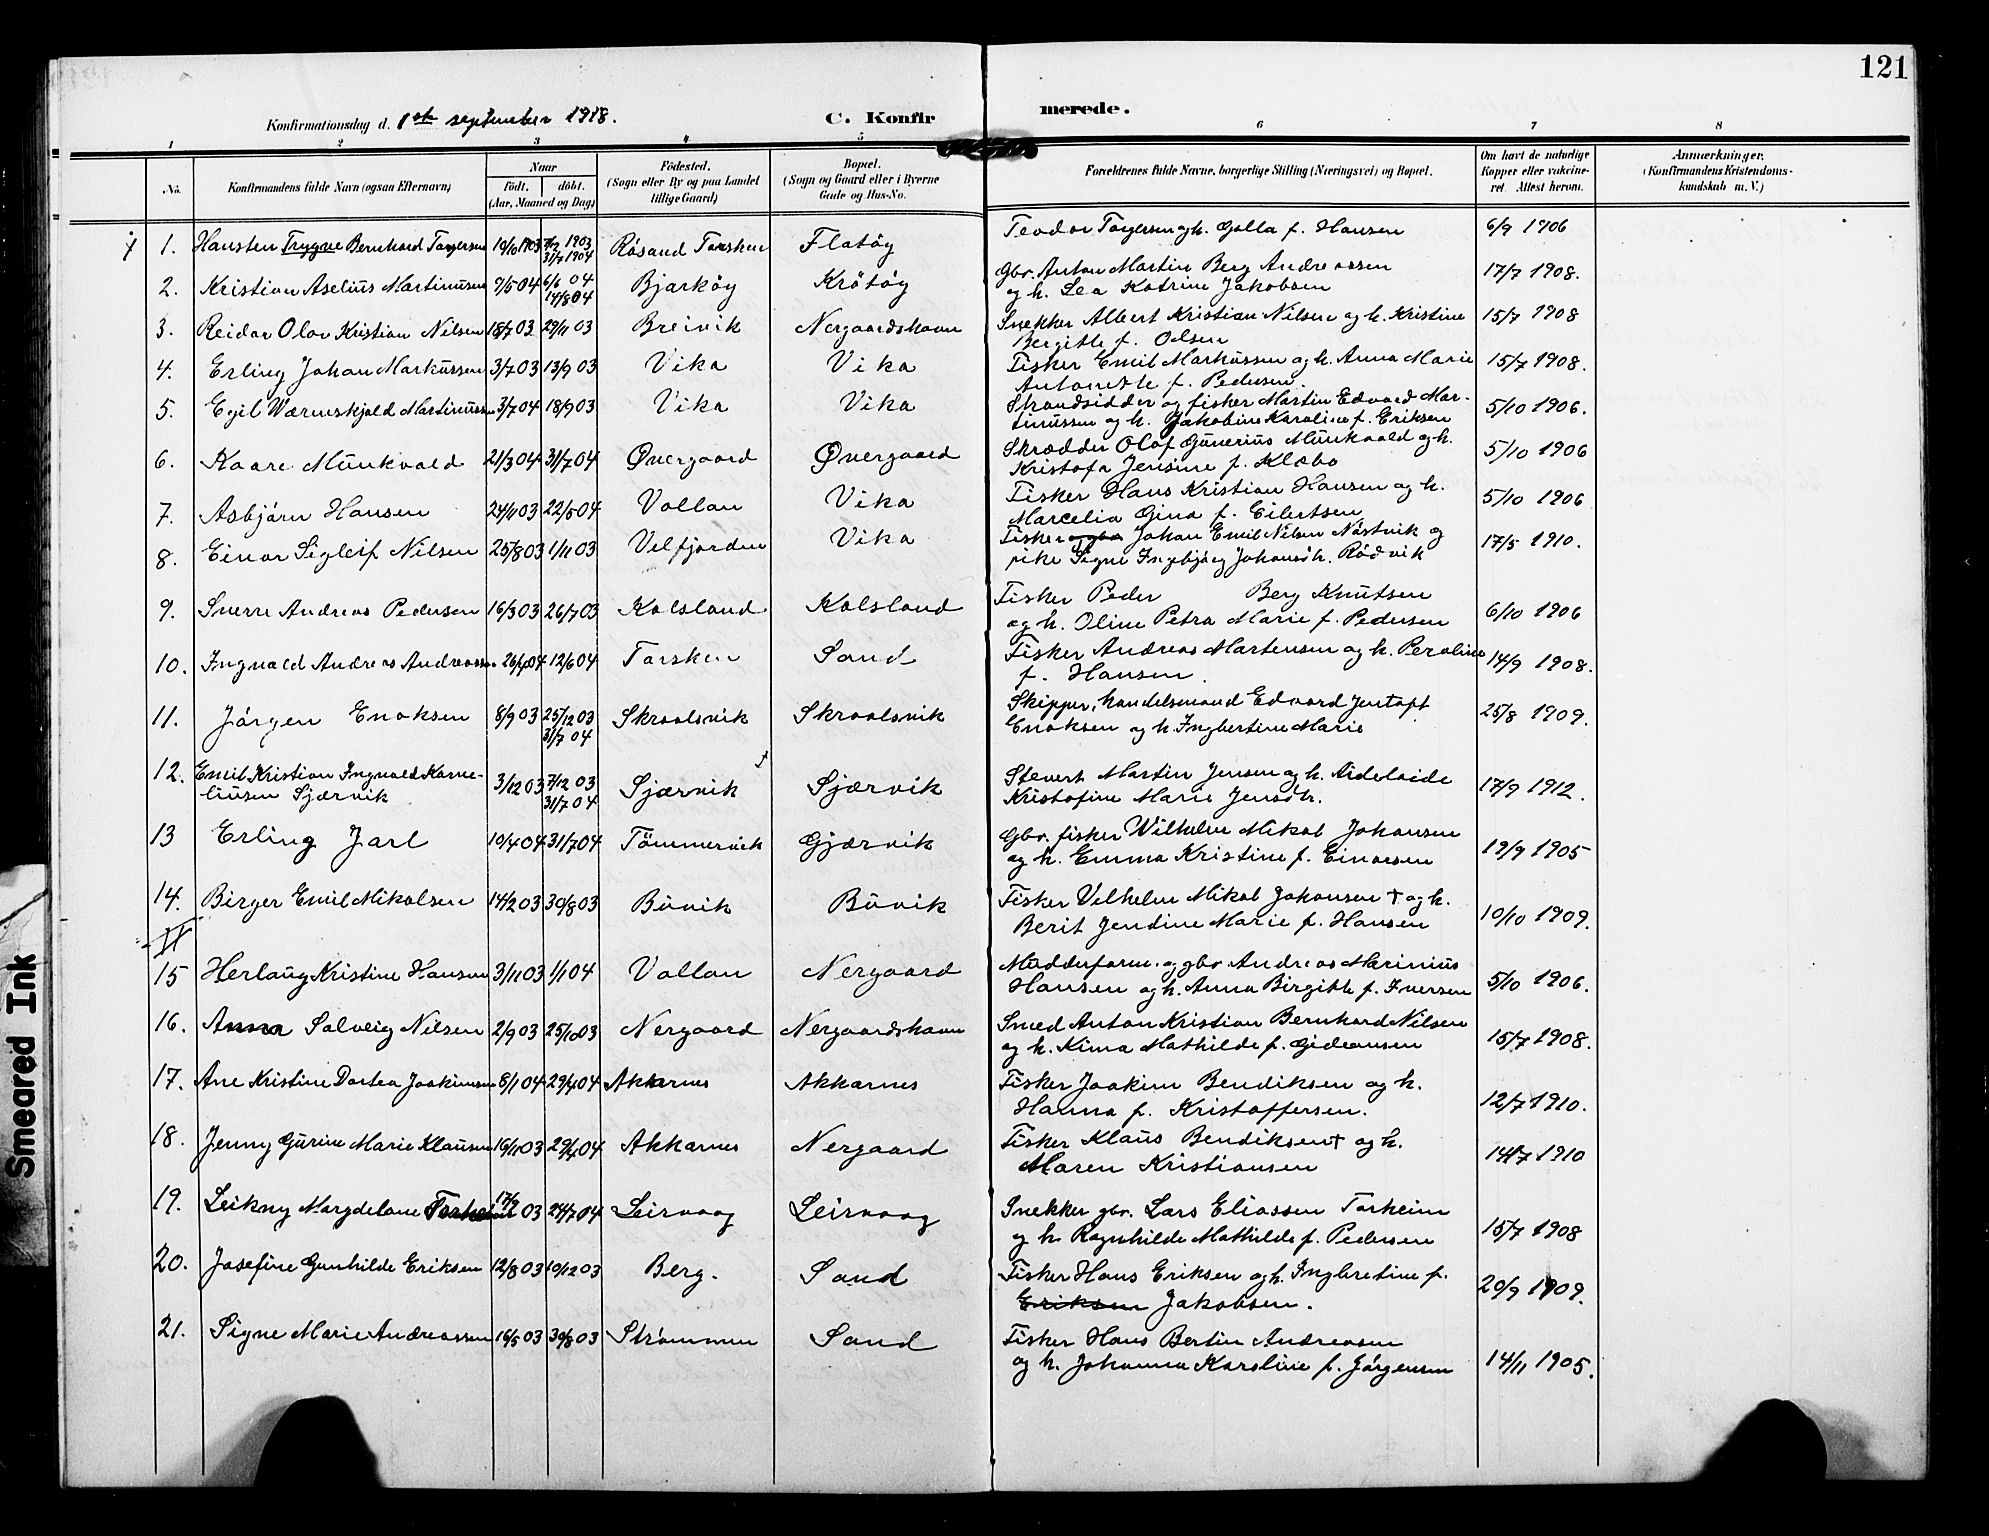 121
Konfirmationsdag d. 1ste september 1918. C. Konfirmerede.
1 2 3 4 5 6 7 8
No. Konfirmandens fulde Navn (ogsaa Efternavn) Naar Födt. döbt. (Aar, Maaned og Dag) Födested. (Sogn eller By og paa Landet tillige Gaard) Bopæl. (Sogn og Gaard eller i Byerne Gade og Hus-No. Forældrenes fulde Navne, borgerlige Stilling (Næringsvei) og Bopæl. Om havt de naturlige Kopper eller vakcineret. Attest herom. Anmærkninger. (Konfirmandens Kristendomskundskab m. V.)
1. Hansten Trygve Bernhard Torgersen 19/10 1903 7/12 1903 31/7 1904 Rösand Torsken Flatöy Teodor Torgersen og h. Golla f. Hansen 6/9 1906
2. Kristian Aselius Martinusen 9/5 04 6/6 04 14/8 04 Bjarköy Krötöy Gbr. Anton Martin Berg Andreassen
og h. Lea Katrine Jakobsen 17/7 1908.
3. Reidar Olav Kristian Nilsen 18/7 03 29/11 03 Breivik Nergaardshavn Snekker Albert Kristian Nilsen og h. Kristine
Bergitte f. Olsen 15/7 1908
4. Erling Johan Markussen 3/7 03 13/9 03 Vika Vika Fisker Emil Markussen og h. Anna Marie
Antonette f. Pedersen. 15/7 1908.
5. Egil Wærenskjold Martinussen 3/7 04 18/9 03 Vika Vika Strandsidder og fisker Martin Edvard Mar-
tinussen og h. Jakobine Karoline f. Eriksen 5/10 1906.
6. Kaare Munkvold 21/3 04 31/7 04 Øvergaard Øvergaard Skrædder Olaf Gunerius Munkvold og h.
Kristofa Jensine f. Klæbo 5/10 1906
7. Asbjörn Hansen 24/11 03 22/5 04 Vollan Vika Fisker Hans Kristian Hansen og h.
Marcelia Gina f. Eilertsen 5/10 1906
8. Einar Sigleif Nilsen 25/8 03 1/11 03 Velfjorden Vika Fisker Johan Emil Nilsen Nästvik og
pike Signe Ingebjörg Johansdt. Rödvik 17/5 1910.
9. Sverre Andreas Pedersen 16/3 03 26/7 03 Kalsland Kalsland Fisker Peder Berg Knutsen
og h. Oline Petra Marie f. Pedersen 6/10 1906
10. Ingvald Andreas Andreassen 26/4 04 12/6 04 Torsken Sand Fisker Andreas Martensen og h. Peroline
f. Hansen. 14/9 1908.
11. Jörgen Enoksen 8/9 03 25/12 03 31/7 04 Skrolsvik Skrolsvik Skipper, handelsmand Edvard Jentoft
Enoksen og h. Ingbertine Marie 25/8 1909.
12. Emil Kristian Ingvald Korne-
liusen Sjærvik 3/12 03 7/12 03 31/7 04 Sjærvik Sjærvik Stevert Martin Jensen og h. Aidelaide
Kristofine Marie Jensdt. 17/9 1912.
13 Erling Jarl 10/4 04 31/7 04 Tömmervik Gjærvik Gbr. fisker Wilhelm Mikal Johansen
og h. Emma Kristine f. Einarsen 19/9 1905
14. Birger Emil Mikalsen 14/2 03 30/8 03 Buvik Buvik Fisker Vilhelm Mikal Johansen † og h.
Berit Jendine Marie f. Hansen 10/10 1909.
II
15 Herlaug Kristine Hansen 3/11 03 1/1 04 Vollan Nergaard Mudderform. og gbr. Andreas Marinius
Hansen og h. Anna Birgitte f. Iversen 5/10 1906.
16. Anna Solveig Nilsen 2/9 03 25/10 03 Nergaard Nergaardshavn Smed Anton Kristian Bernhard Nilsen
og h. Kima Mathilde f. Gideonsen 15/7 1908.
17. Ane Kristine Dortea Joakimsen 8/1 04 29/4 04 Akkarnes Akkarnes Fisker Joakim Bendiksen og h.
Hanna f. Kristoffersen. 12/7 1910.
18. Jenny Gurine Marie Klausen 16/11 03 29/4 04 Akkarnes Nergaard Fisker Klaus Bendiksen † og h.
Maren Kristiansen 14/7 1910
19. Leikny Magdelane Torheim 17/9 03 24/7 04 Leirvaag Leirvaag Snekker gbr. Lars Eliassen Torheim
og h. Ragnhilde Mathilde f. Pedersen 15/7 1908
20. Josefine Gunhilde Eriksen 12/8 03 10/12 03 Berg. Sand Fisker Hans Eriksen og h. Ingbretine f.
Eriksen Jakobsen. 20/9 1909.
21. Signe Marie Andreassen 16/5 03 30/8 03 Strömmen Sand Fisker Hans Bertin Andreasen
og h. Johanna Karoline f. Jörgensen 14/11 1905.
Smeared Ink